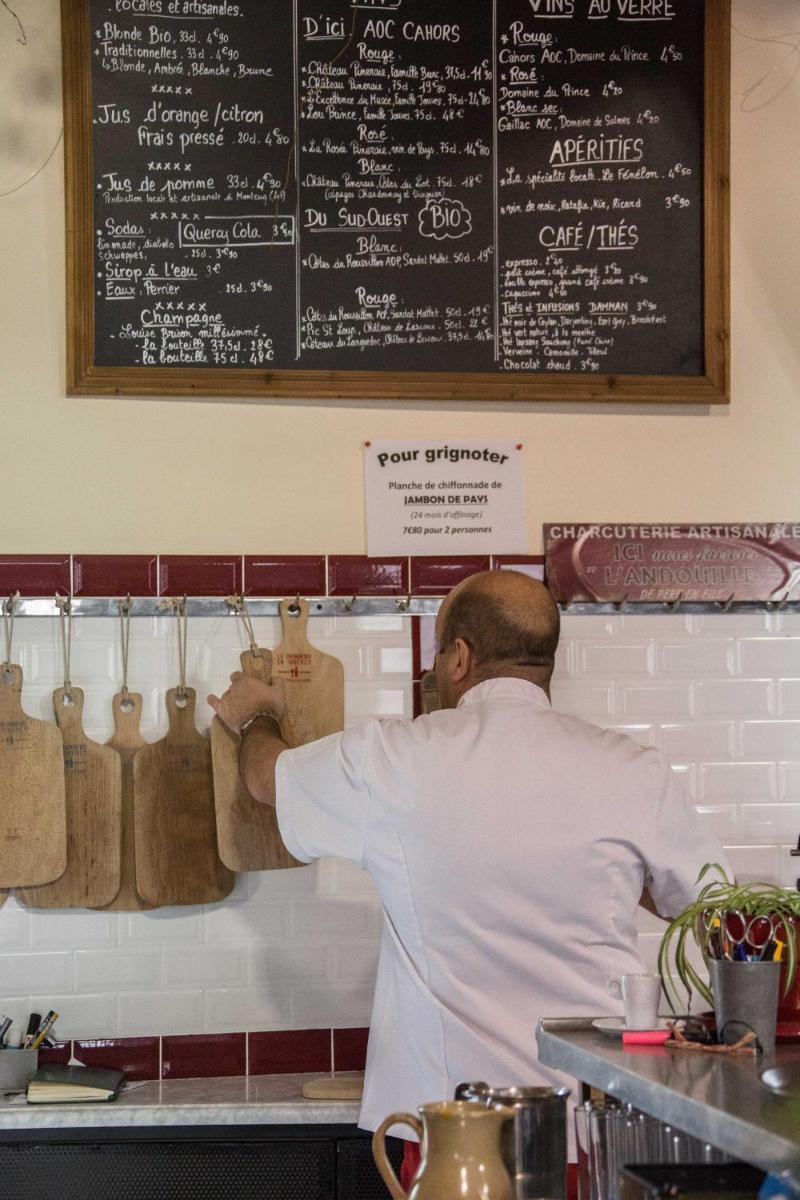 locales et artisanales.
• Blonde Bio, 33cl. 4€90
• Traditionnelles. 33cl. 4€90
↳ Blonde, Ambrée, Blanche, Brune
xxxxx
• Jus d'orange/citron
frais pressé . 20cl. 4€80
xxxx
• Jus de pomme 33cl. 4€90
Production locale et artisanale à Montcuq (Lot)
xxxxx
• Sodas:
limonade, diabolo
schweppes, . 25cl. 3€90
Quercy Cola. 3€80
• Sirop à l'eau 3€
• Eaux: Perrier . 25cl. 3€90
xxxxx
Champagne
- Louise Brison millésimé.
- la bouteille 37,5cl. 28€
- la bouteille 75cl. 48€
VINS
D'ici AOC CAHORS
Rouge:
Château Pineraie, Famille Burc, 37,5cl.
Château Pineraie, 75cl. 19€80
Excellence du Musée, Famille Jouves. 75cl.
Lou Prince, Famille Jouves. 75cl. 48€
Rosé:
La Rosée Pineraie, vin de Pays. 75cl.
Blanc:
Château Pineraie, Côtes du Lot. 75cl. 18€
(cépages Chardonnay et Viognier)
DU SUD-OUEST BIO
Blanc:
Côtes du Roussillon AOP, Sardat Mallet. 50cl. 19€
Rouge:
Côtes du Roussillon AOP, Sardat Mallet. 50cl. 19€
Pic St Loup, Château de Lascaux. 50cl. 22€
Coteaux du Languedoc, Château de Lascaux. 37,5cl.
VINS AU VERRE
• Rouge:
Cahors AOC, Domaine du Prince 4€50
• Rosé:
Domaine du Prince 4€20
• Blanc sec:
Gaillac AOC, Domaine de Salmes 4€20
APÉRITIFS
La spécialité locale. Le Fénelon. 4€50
vin de noix, Ratafia, Kir, Ricard 3€90
CAFÉ/THÉS
- expresso. 2€40
- petit crème, café allongé
- double expresso, grand café crème
- cappuccino
THÉS ET INFUSIONS DAMMAN 3€90
- thé noir de Ceylan, Darjeeling, Earl Grey, Breakfast
- thé vert nature, à la menthe
- thé Lapsang Souchong (fumé Chine)
- Verveine - Camomille - Tilleul
- Chocolat chaud. 3€90
Pour grignoter
Planche de chiffonnade de
JAMBON DE PAYS
(24 mois d'affinage)
7€80 pour 2 personnes
CHARCUTERIE ARTISANALE
ICI nous faisons
L'ANDOUILLE
DE PERE EN FILS